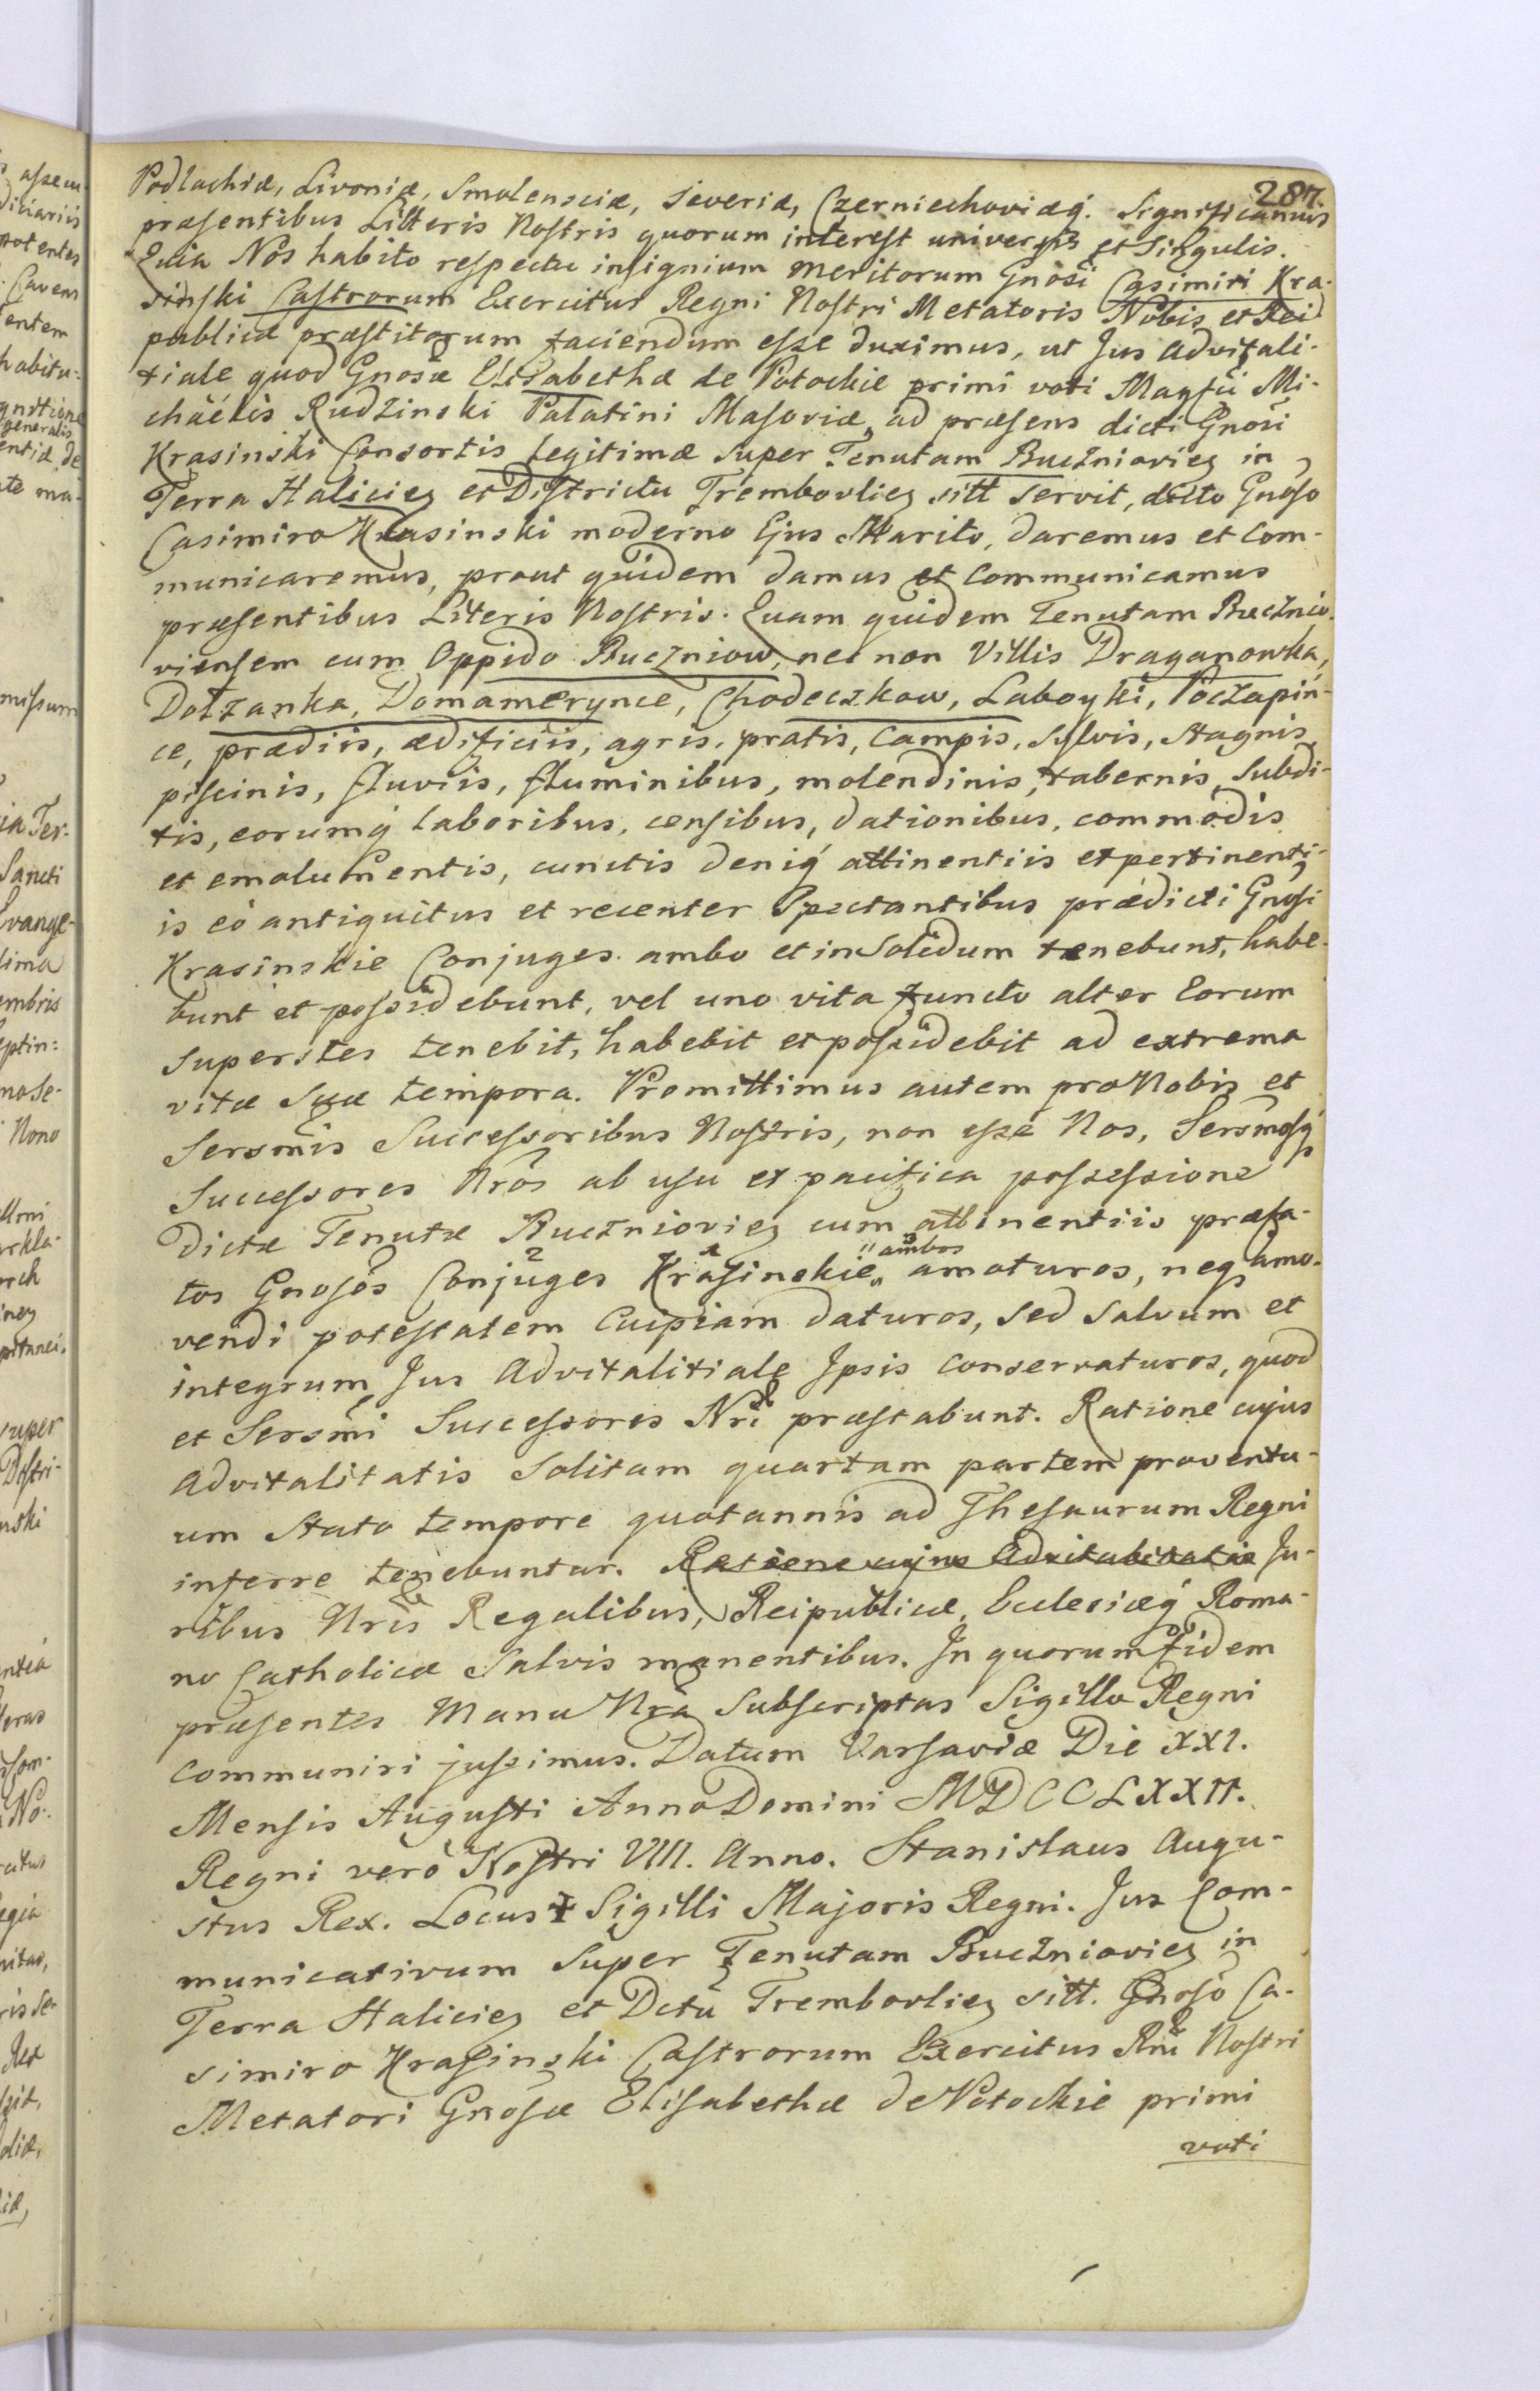 287.
Podlachiæ, Livoniæ, Smolensciæ, Severiæ, Czerniechoviæq́. Significamus
præsentibus Litteris Nostris quorum interest universis et singulis.
Quia Nos habito respectu insignium meritorum Gnosi Casimiri Kra-
sinski Castrorum Exercitus Regni Nostri Metatoris Nobis et Rei
publicæ præstitorum faciendum esse duximus, ut Jus advitali-
tiale quod Gnosæ Elisabethæ de Potockie primi voti Magfci Mi-
chaëlis Rudzinski Palatini Masoviæ, ad præsens dicti Gnosi
Krasinski Consortis legitimæ super Tenutam Buczniovieṅ in
Terra Halicieṅ et Districtu Trembovlieṅ sitt servit, dicto Gnoso
Casimiro Krasinski moderno Ejus Marito, daremus et com-
municaremus, prout quidem damus et communicamus
præsentibus Literis Nostris. Quam quidem Tenutam Bucznio-
viensem cum Oppido Buczniow, nec non Villis Draganowka,
Dołzanka, Domamerynce, Chodeczkow, Laboyki, Poczapin-
ce, prædiis, ædificiis, agris, pratis, campis, sylvis, stagnis,
piscinis, fluviis, fluminibus, molendinis, tabernis, subdi-
tis, eorumq́ laboribus, censibus, dationibus, commodis
et emolumentis, cunctis deniq́ attinentiis et pertinenti-
is eò antiquitus et recenter spectantibus prædicti Gnosi
Krasinskie Conjuges ambo et in solidum tenebunt, habe-
bunt et possidebunt, vel uno vita functo alter Eorum
superstes tenebit, habebit et possidebit ad extrema
vitæ suæ tempora. Promittimus autem pro Nobis et
Sersmis Successoribus Nostris, non esse Nos, Sersmosq́
Successores Nros ab usu et pacifica possessione
dictæ Tenutæ Buczniovieṅ cum attinentiis præfa-
tos Gnosos Conjuges Krasinskie " ambos amoturos, neq́ amo-
vendi potestatem cuipiam daturos, sed salvum et
integrum Jus Advitalitiale Ipsis conservaturos, quod
et Sersmi Successores Nri præstabunt. Ratione cujus
Advitalitatis solitam quartam partem proventu-
um stato tempore quotannis ad Thesaurum Regni
inferre tenebuntur. Ratione cujus Advitalitatis Ju-
ribus Nris Regalibus, Reipublicæ, Ecclesiæq́ Roma-
no Catholicæ salvis manentibus. In quorum fidem
præsentes Manu Nra subscriptas Sigillo Regni
communiri jussimus. Datum Varsaviæ Die XXI.
Mensis Augusti Anno Domini MDCCLXXII.
Regni verò Nostri VIII. Anno. Stanislaus Augu-
stus Rex. Locus Sigilli Majoris Regni. Jus Com-
municativum super Tenutam Buczniovieṅ in
Terra Halicieṅ et Dctu Trembovlieṅ sitt. Gnoso Ca-
simiro Krasinski Castrorum Exercitus Rni Nostri
Metatori Gnosæ Elisabethæ de Potockie primi
voti